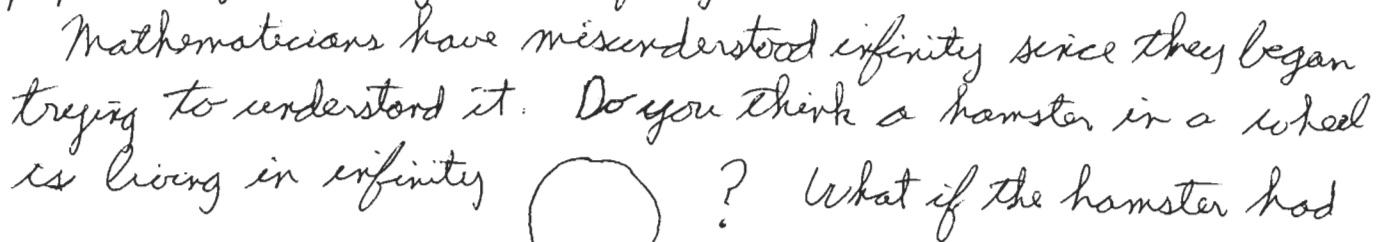 Mathematicians have misunderstood infinity since they began
trying to understand it. Do you think a hamster in a wheel
is living in infinity ? What if the hamster had